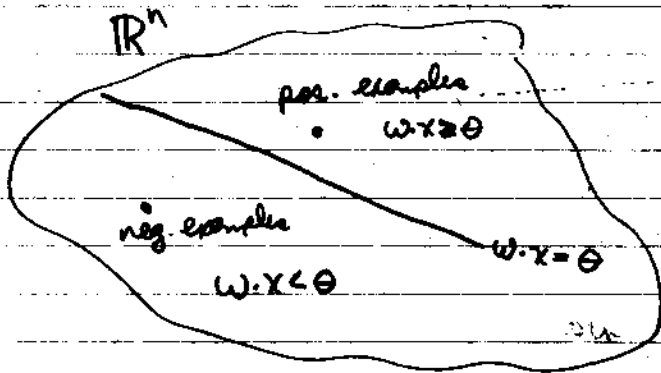 ℝⁿ
pos. examples
w·x ≥ θ
neg. examples
w·x = θ
w·x < θ